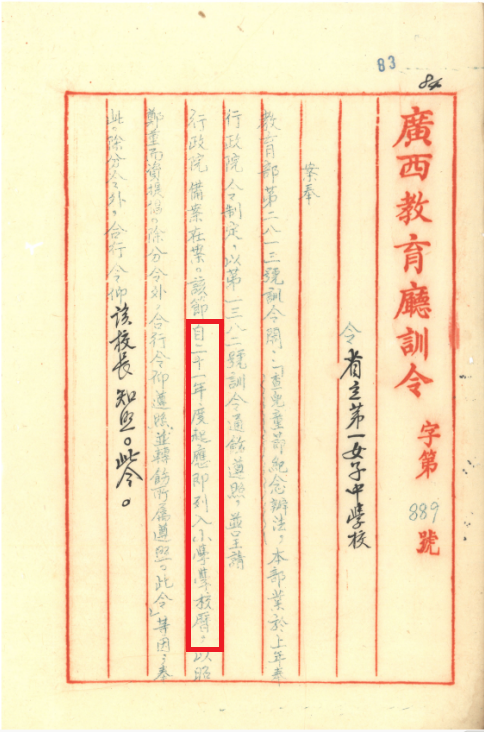 83
84
廣西教育廳訓令 字第889號
令省立第一女子中學校
案奉
教育部第二八一三號訓令開:「查兒童節紀念辦法,本部業於上年奉
行政院令制定,以第一三八二號訓令通飭遵照,並呈請
行政院備案在案。該節自二十一年度起應即列入小學學校曆,以昭
鄭重而資提倡。除分令外,合行令仰遵照,並轉飭所屬遵照。此令」等因;奉
此,除分令外,合行令仰該校長知照。此令。